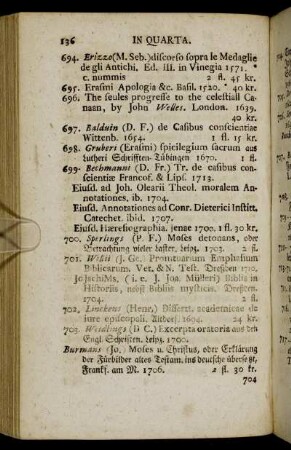 136 IN QUARTA.
694. Erizzo (M. Seb.) discorso sopra le Medaglie
de gli Antichi. Ed. III. in Vinegia 1571.
c. nummis 2 fl. 45 kr.
695. Erasmi Apologia &c. Basil. 1520. 40 kr.
696. The seules progresse to the celestiall Ca-
naan, by John Welles. London. 1639.
40 kr.
697. Balduin (D. F.) de Casibus conscientiæ
Wittenb. 1654. 1 fl. 15 kr.
698. Grubers (Erasmi) spicilegium sacrum aus
Lutheri Schrifften. Tübingen 1670. 1 fl.
699. Bechmanni (D. Fr.) Tr. de casibus con-
scientiæ Francof. & Lips. 1713.
Eiusd. ad Joh. Olearii Theol. moralem An-
notationes, ib. 1704.
Eiusd. Annotationes ad Conr. Dieterici Instit.
Catechet. ibid. 1707.
Eiusd. Hæresiographia. jenae 1700. 1 fl. 30 kr.
700. Sperlings (P. F.) Moses detonans, oder
Betrachtung vieler laster, leipz. 1703. 2 fl.
701. (J. Ge.) Promtuarium Emphasium
Biblicarum. Vet. & N. Test. Dresden 1703,
(i. e. J. Joa. Mülleri) Biblia in
Historiis, nebst Bibliis mysticis. Dresden.
1704. 2 fl.
702. Linckens (Henr.) Dissert. academicae de
iure episcopali. Altdorf. 1694. 24 kr.
703. Wendlings (B C.) Excerpta oratoria aus den
Engl. Schriften. leipz. 1700.
Burmans (Jo.) Moses u. Christus, oder Erklärung
der Fürbilder altes Testam. ins deutsche übersetzt,
Frankf. am M. 1706. 2 fl. 30 kr.
704